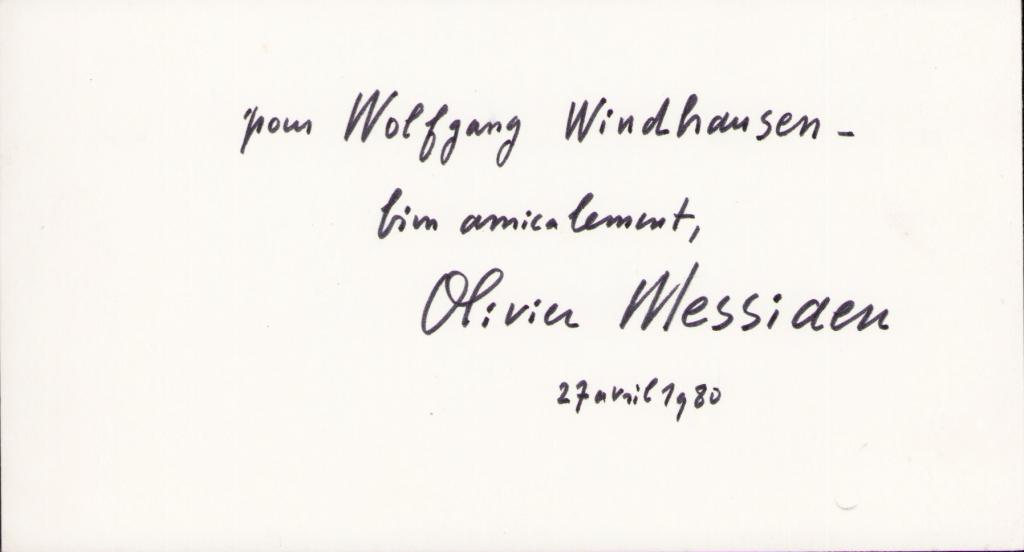 pour Wolfgang Windhausen -
bien amicalement,
Olivier Messiaen
27 avril 1980